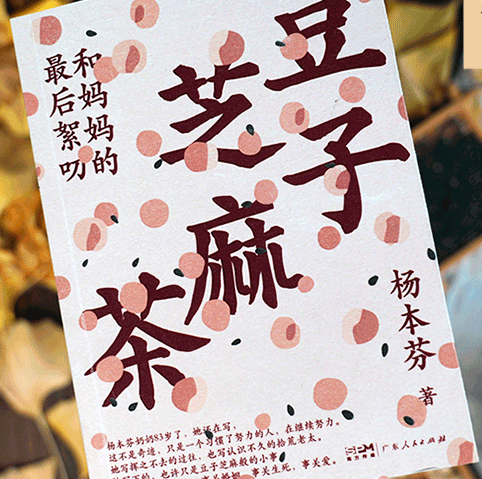 豆子
芝麻
茶
和妈妈的
最后絮叨
杨本芬 著
杨本芬奶奶83岁了,她还在写,
这不是奇迹,只是一个习惯了努力的人,在继续努力。
她写挥之不去的过往,也写认识不久的拾荒老太。
写下的,也许只是豆子芝麻般的小事
事关婚姻,事关生死,事关爱。
SPM
南方传媒
广东人民出版社